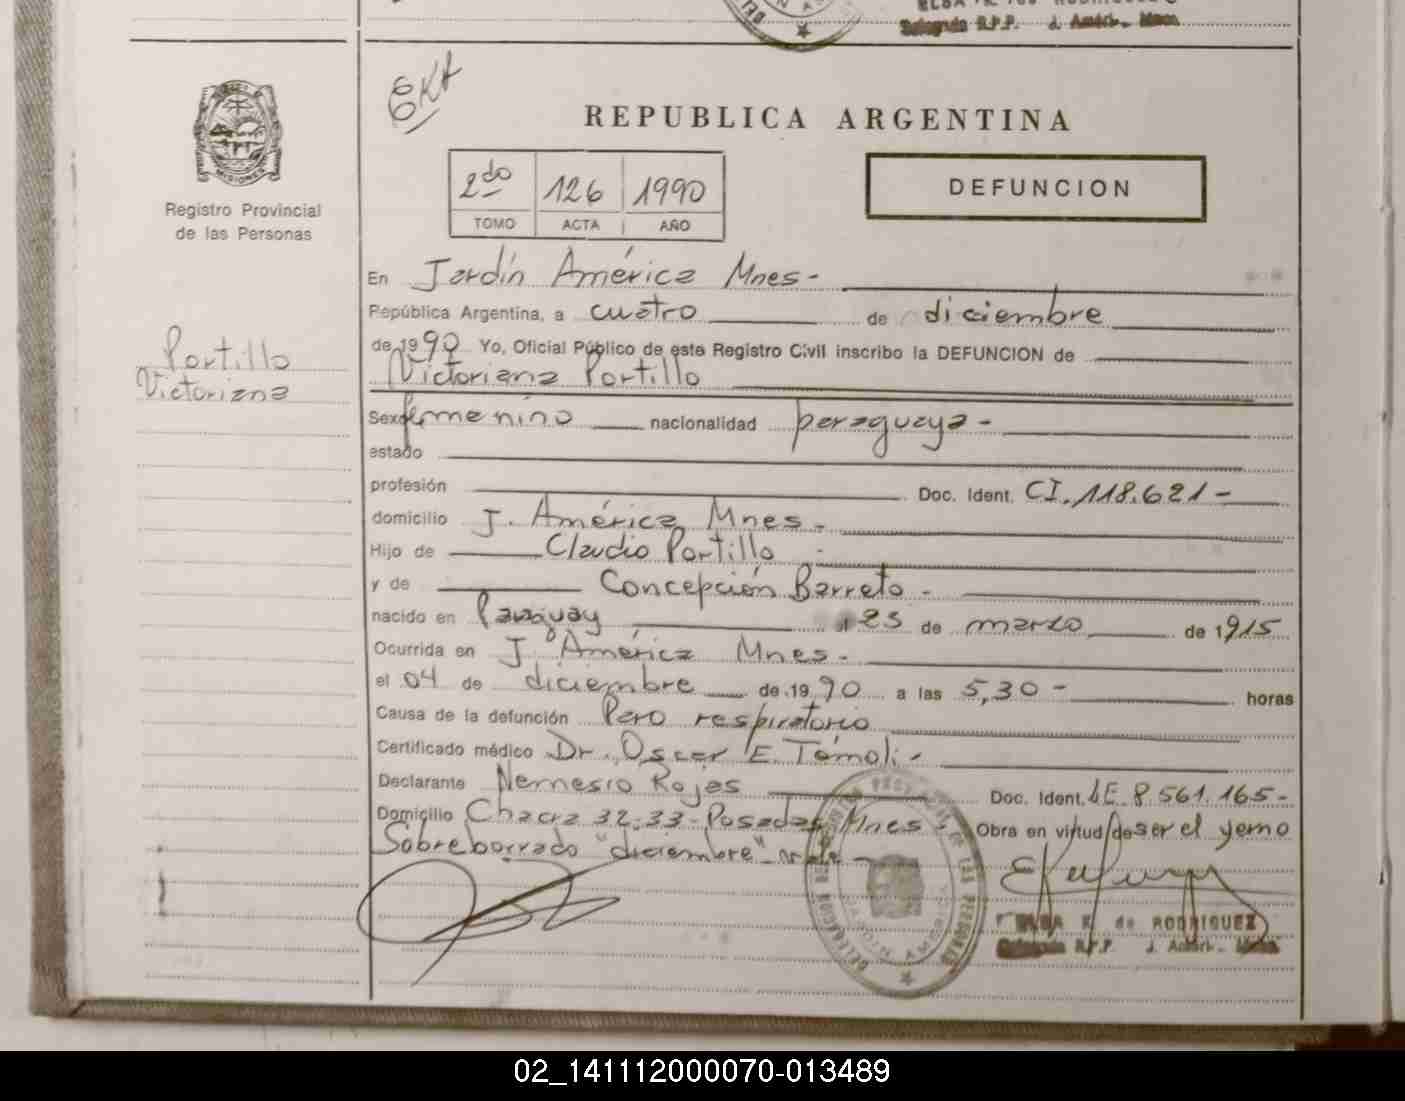 EKA
REPUBLICA ARGENTINA
2do 126 1990
TOMO ACTA AÑO
DEFUNCION
MISIONES
Registro Provincial
de las Personas
Portillo
Victoriana
En Jardín América Mnes-
República Argentina, a cuatro de diciembre
de 1990 Yo, Oficial Público de este Registro Civil inscribo la DEFUNCION de
Victoriana Portillo
Sexo femenino nacionalidad paraguaya-
estado
profesión Doc. Ident. CI.118.621-
domicilio J. América Mnes-
Hijo de Claudio Portillo
y de Concepción Barreto-
nacido en Paraguay el 23 de marzo de 1915
Ocurrida en J. América Mnes-
el 04 de diciembre de 1990 a las 5,30- horas
Causa de la defunción Paro respiratorio
Certificado médico Dr. Oscar E. Tomoli-
Declarante Nemesio Rojas Doc. Ident. LE.8.561.165-
Domicilio Chacra 32-33-Posadas Mnes. Obra en virtud de ser el yerno
Sobreborrado "diciembre" vale
ELSA E. de RODRIGUEZ
Delegada R.P.P. J. Améri- Mnes
02_141112000070-013489